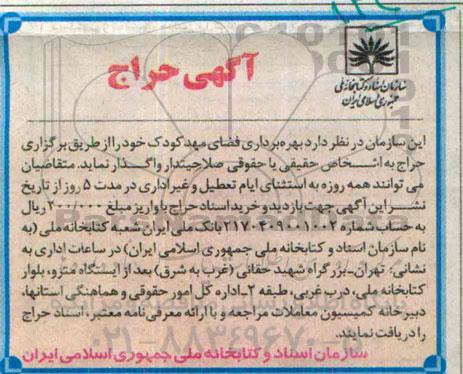 آگهی حراج
سازمان اسناد و کتابخانه ملی
جمهوری اسلامی ایران
این سازمان در نظر دارد بهره‌برداری فضای مهد کودک خود را از طریق برگزاری
حراج به اشخاص حقیقی یا حقوقی صلاحیتدار واگذار نماید. متقاضیان
می توانند همه روزه به استثنای ایام تعطیل و غیر اداری در مدت ۵ روز از تاریخ
نشر این آگهی جهت بازدید و خرید اسناد حراج با واریز مبلغ ۲۰۰/۰۰۰ ریال
به حساب شماره ۲۱۷۰۴۰۹۰۰۱۰۰۲ بانک ملی ایران شعبه کتابخانه ملی (به
نام سازمان اسناد و کتابخانه ملی جمهوری اسلامی ایران) در ساعات اداری به
نشانی: تهران-بزرگراه شهید حقانی (غرب به شرق) بعد از ایستگاه مترو، بلوار
کتابخانه ملی، درب غربی، طبقه ۲-اداره کل امور حقوقی و هماهنگی استانها،
دبیرخانه کمیسیون معاملات مراجعه و با ارائه معرفی نامه معتبر، اسناد حراج
را دریافت نمایند.
سازمان اسناد و کتابخانه ملی جمهوری اسلامی ایران
۰۲۱-۸۸۳۴۹۶۷۰-۵